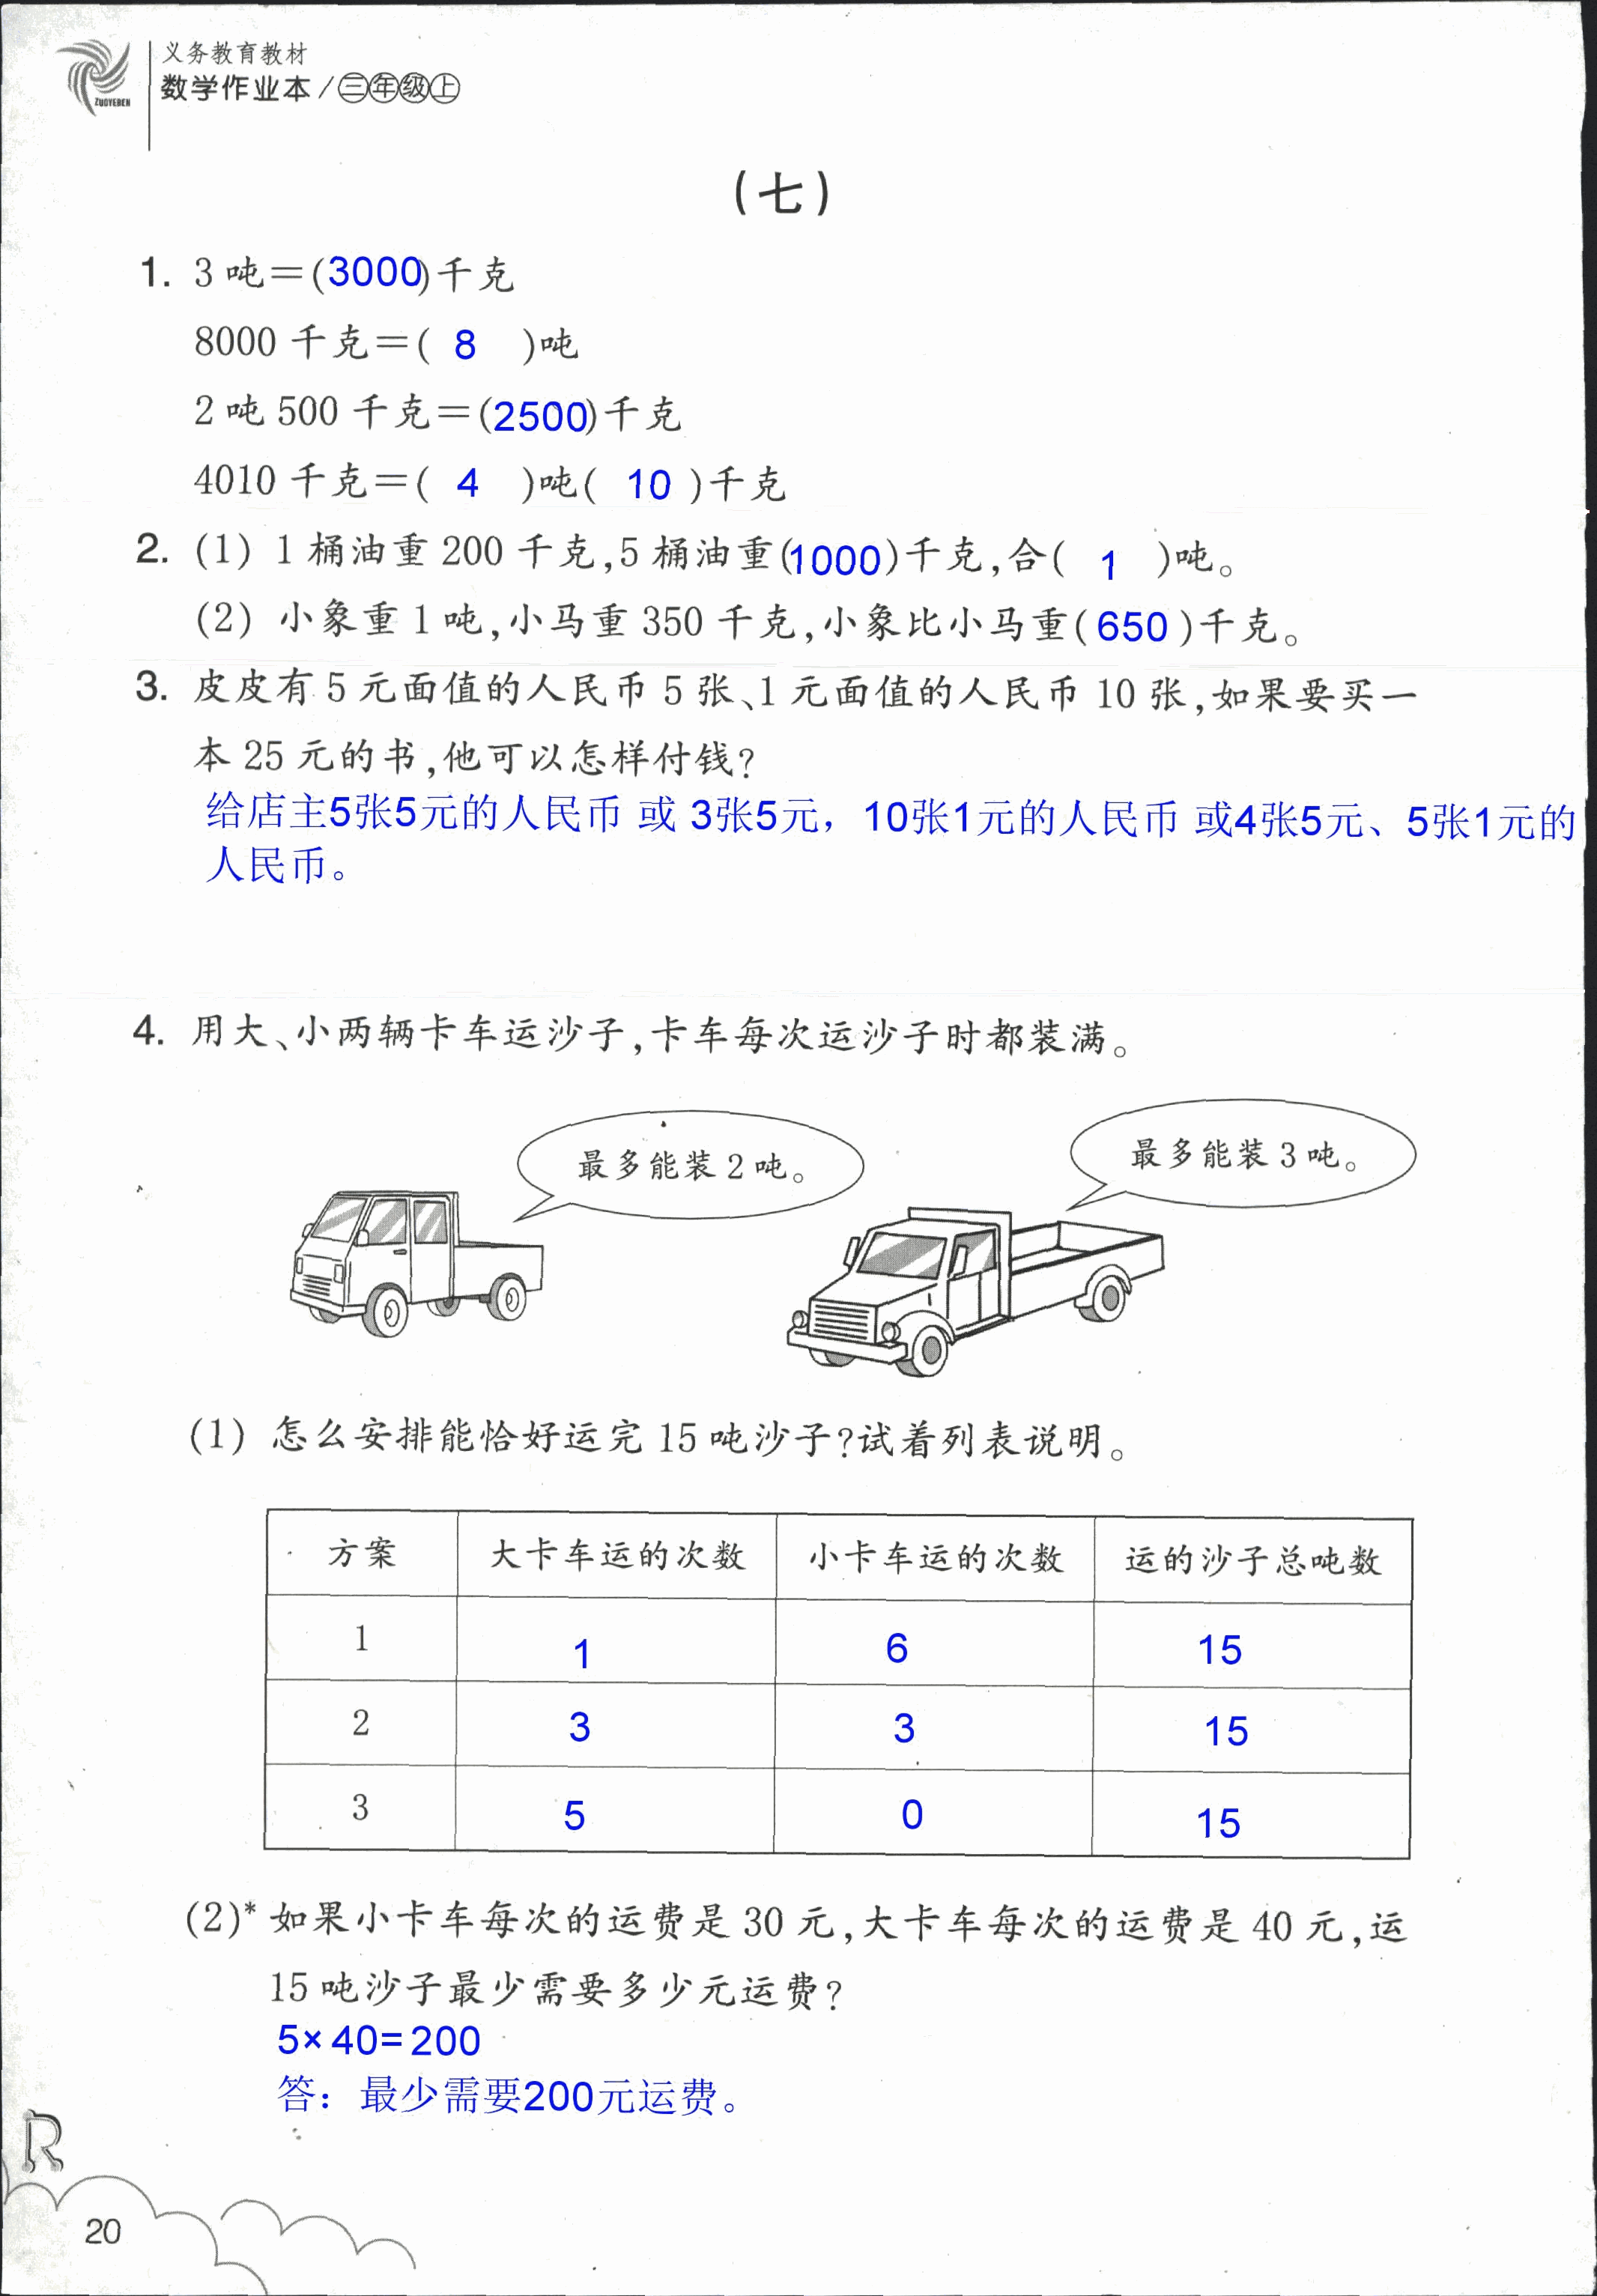 义务教育教材
数学作业本/三年级上
ZUOYEBEN
(七)
1. 3吨=(3000)千克
8000千克=( 8 )吨
2吨500千克=(2500)千克
4010千克=( 4 )吨( 10 )千克
2. (1) 1桶油重200千克,5桶油重(1000)千克,合( 1 )吨。
(2) 小象重1吨,小马重350千克,小象比小马重(650)千克。
3. 皮皮有5元面值的人民币5张、1元面值的人民币10张,如果要买一
本25元的书,他可以怎样付钱?
给店主5张5元的人民币 或 3张5元，10张1元的人民币 或4张5元、5张1元的
人民币。
4. 用大、小两辆卡车运沙子,卡车每次运沙子时都装满。
最多能装2吨。
最多能装3吨。
(1) 怎么安排能恰好运完15吨沙子?试着列表说明。
方案 大卡车运的次数 小卡车运的次数 运的沙子总吨数
1 1 6 15
2 3 3 15
3 5 0 15
(2)* 如果小卡车每次的运费是30元,大卡车每次的运费是40元,运
15吨沙子最少需要多少元运费?
5×40=200
答：最少需要200元运费。
R
20